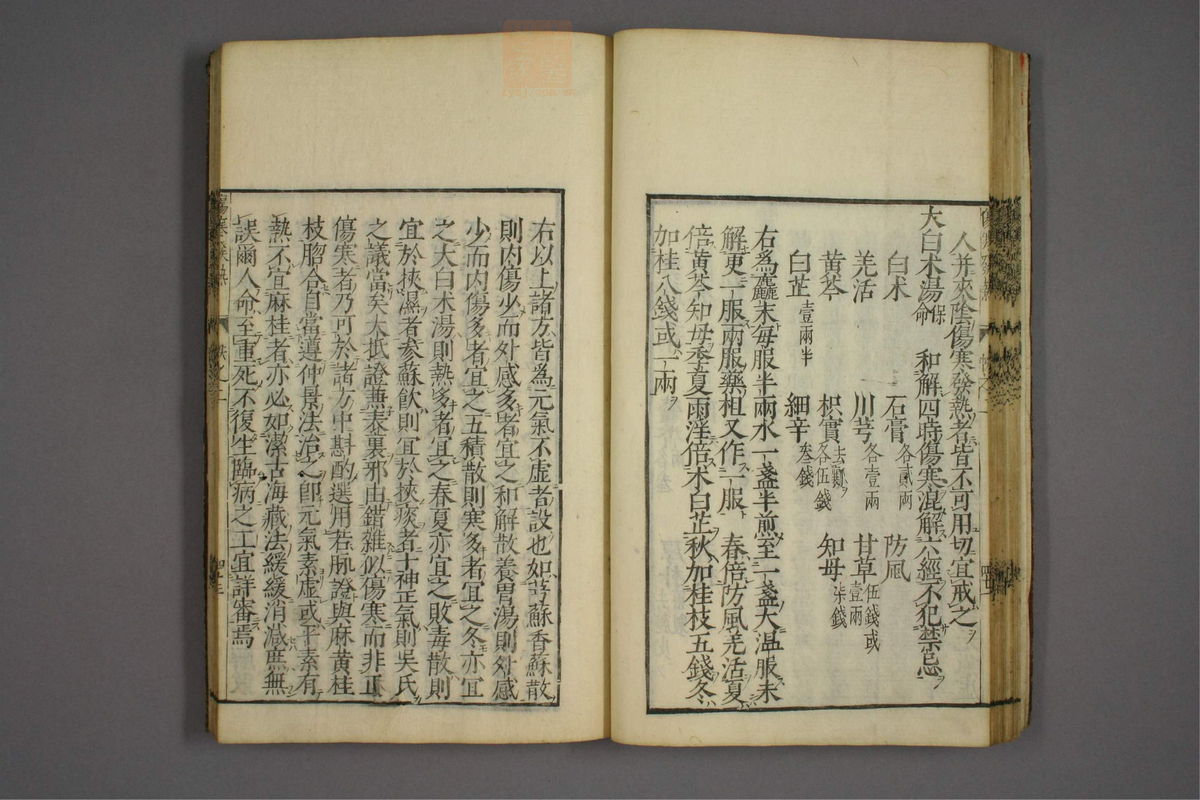 人并來陰傷寒發熱者皆不可用切宜戒之
大白术湯保命 和解四時傷寒混解六經不犯禁忌
白术 石膏各貳兩 防風
羌活 川芎各壹兩 甘草伍錢或壹兩
黄芩 枳實去穰各伍錢 知母柒錢
白芷壹兩半 細辛叁錢
右為麤末每服半兩水一盞半煎至一盞大温服未
解更一服兩服藥柤又作一服 春倍防風羌活夏
倍黄芩知母季夏雨淫倍术白芷秋加桂枝五錢冬
加桂八錢或一兩
右以上諸方皆為元氣不虚者設也如芎蘇香蘇散
則内傷少而外感多者宜之和解散養胃湯則外感
少而内傷多者宜之五積散則寒多者宜之冬亦宜
之大白术湯則熱多者宜之春夏亦宜之敗毒散則
宜於挾濕者参蘇飲則宜於挾痰者十神正氣則吳氏
之議當矣大抵證兼表裏邪由錯雜似傷寒而非正
傷寒者乃可於諸方中斟酌選用若脉證與麻黄桂
枝脗合自當遵仲景法治之卽元氣素虚或平素有
熱不宜麻桂者亦必如潔古海藏法緩緩消减庶無
誤爾人命至重死不復生臨病之工宜詳審焉